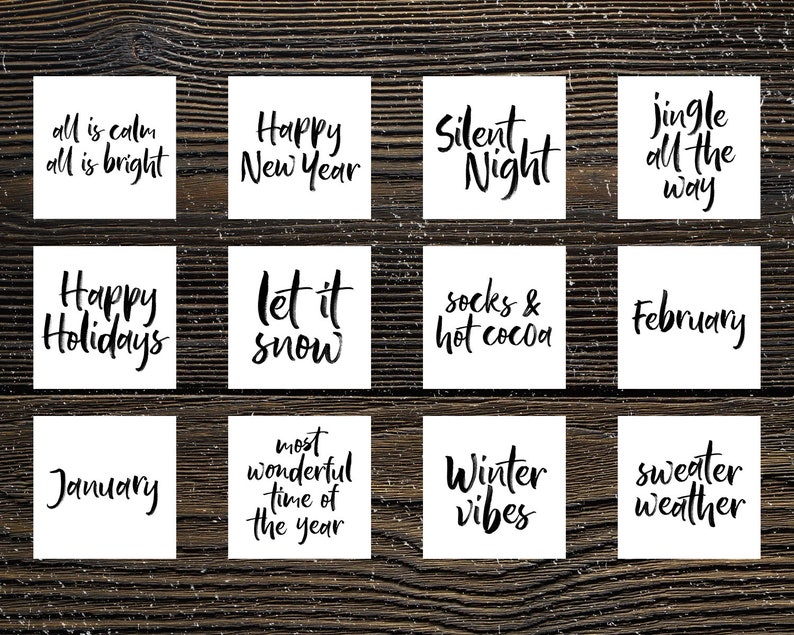 all is calm
all is bright
Happy
New Year
Silent
Night
jingle
all the
way
Happy
Holidays
let it
snow
socks &
hot cocoa
February
January
most
wonderful
time of
the year
Winter
vibes
sweater
weather